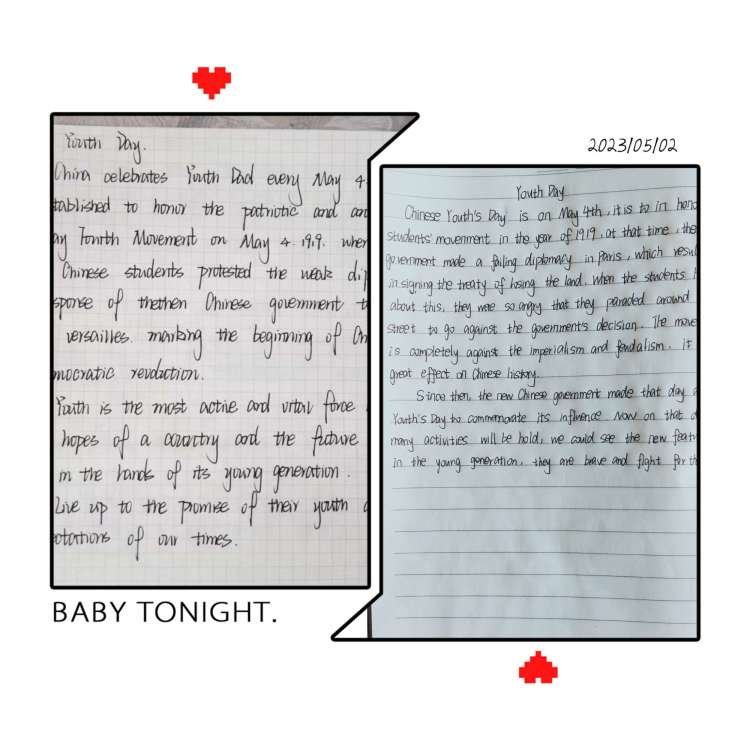 Youth Day.
China celebrates Youth Dad every May 4
tablished to honor the patriotic and
ay Fonrth Movement on May 4. 1919. when
Chinese students protested the weak dip
sponse of thethen Chinese government t
versailles. marking the beginning of Ch
mocratic revduction.
Youth is the most active and vital force
hopes of a country and the future
in the hands of its young generation.
Live up to the promise of their youth a
ctations of our times.
BABY TONIGHT.
2023/05/02
Youth Day
Chinese Youth's Day is on May 4th, it is to in hono
students' movenment in the year of 1919, at that time, the
government made a failing diplomacy in Paris, which resul
in signing the treaty of losing the land. When the students
about this, they were so angry that they paraded around
street to go against the government's decision. The move
is completely against the imperialism and feudalism. it
great effect on Chinese history.
Since then, the new Chinese government made that day a
Youth's Day to commemorate its influence Now on that d
many activities will be hold, we could see the new featu
in the young generation, they are brave and fight for th